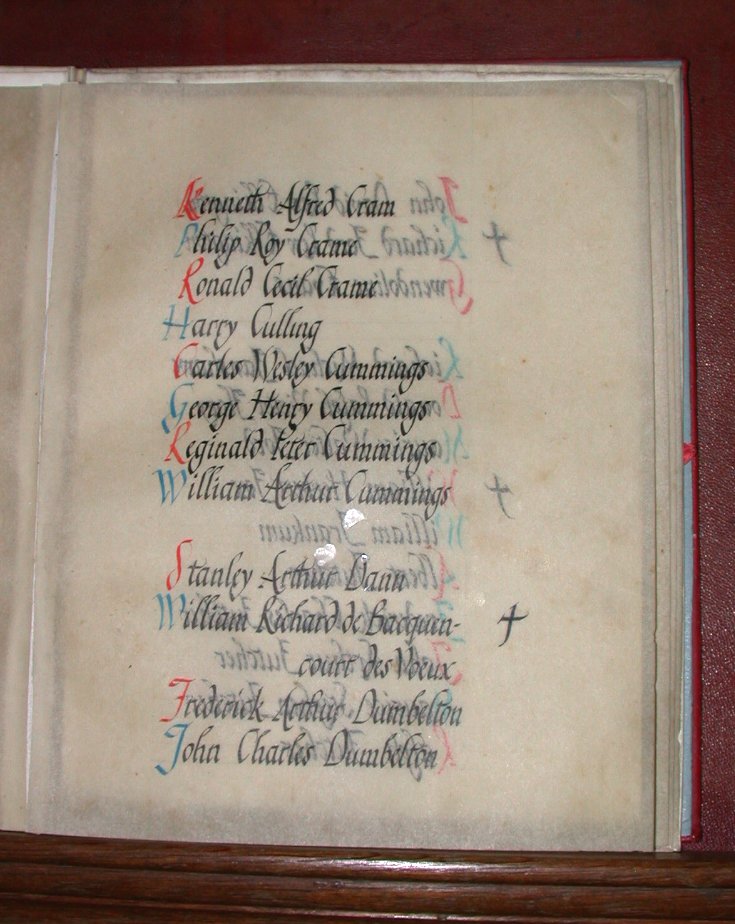 Kenneth Alfred Cram
Philip Roy Crame
Ronald Cecil Crame
Harry Culling
Carles Wesley Cummings
George Henry Cummings
Reginald Peter Cummings
William Arthur Cummings
Stanley Arthur Dann
William Richard de Bacquen- †
court des Voeux
Frederick Arthur Dumbelton
John Charles Dumbelton